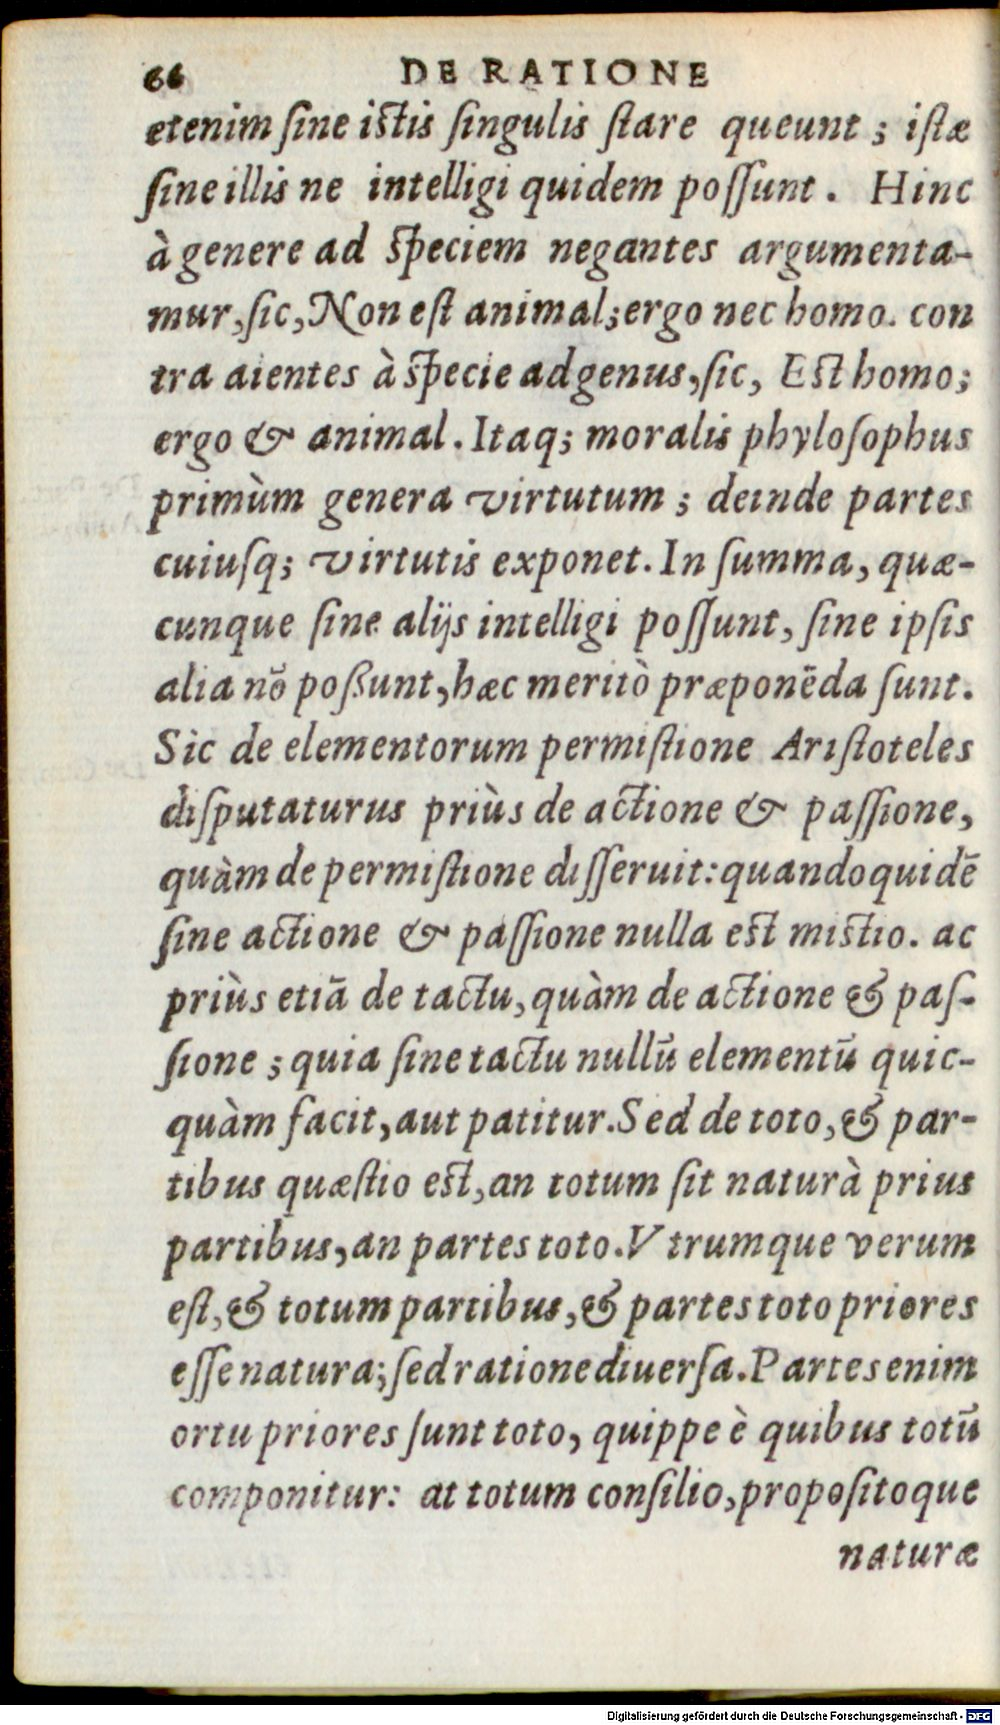 66 DE RATIONE
etenim ſine iſtis ſingulis ſtare queunt ; iſtæ
ſine illis ne intelligi quidem poſſunt . Hinc
à genere ad ſpeciem negantes argumenta-
mur, ſic, Non eſt animal; ergo nec homo. con
tra aientes à ſpecie ad genus, ſic, Eſt homo;
ergo & animal . Itaq; moralis phyloſophus
primùm genera virtutum ; deinde partes
cuiuſq; virtutis exponet. In ſumma, quæ-
cunque ſine alijs intelligi poſſunt, ſine ipſis
alia nō poßunt, hæc meritò præponēda ſunt.
Sic de elementorum permiſtione Ariſtoteles
diſputaturus priùs de actione & paſſione,
quàm de permiſtione diſſeruit: quandoquidē
ſine actione & paſſione nulla eſt miſtio. ac
priùs etiā de tactu, quàm de actione & paſ-
ſione ; quia ſine tactu nullū elementū quic-
quàm facit, aut patitur. Sed de toto, & par-
tibus quæſtio eſt, an totum ſit naturà prius
partibus, an partes toto. Vtrumque verum
eſt, & totum partibus, & partes toto priores
eſſe natura; ſed ratione diuerſa. Partes enim
ortu priores ſunt toto, quippe è quibus totū
componitur: at totum conſilio, propoſitoque
naturæ
Digitalisierung gefördert durch die Deutsche Forschungsgemeinschaft - DFG